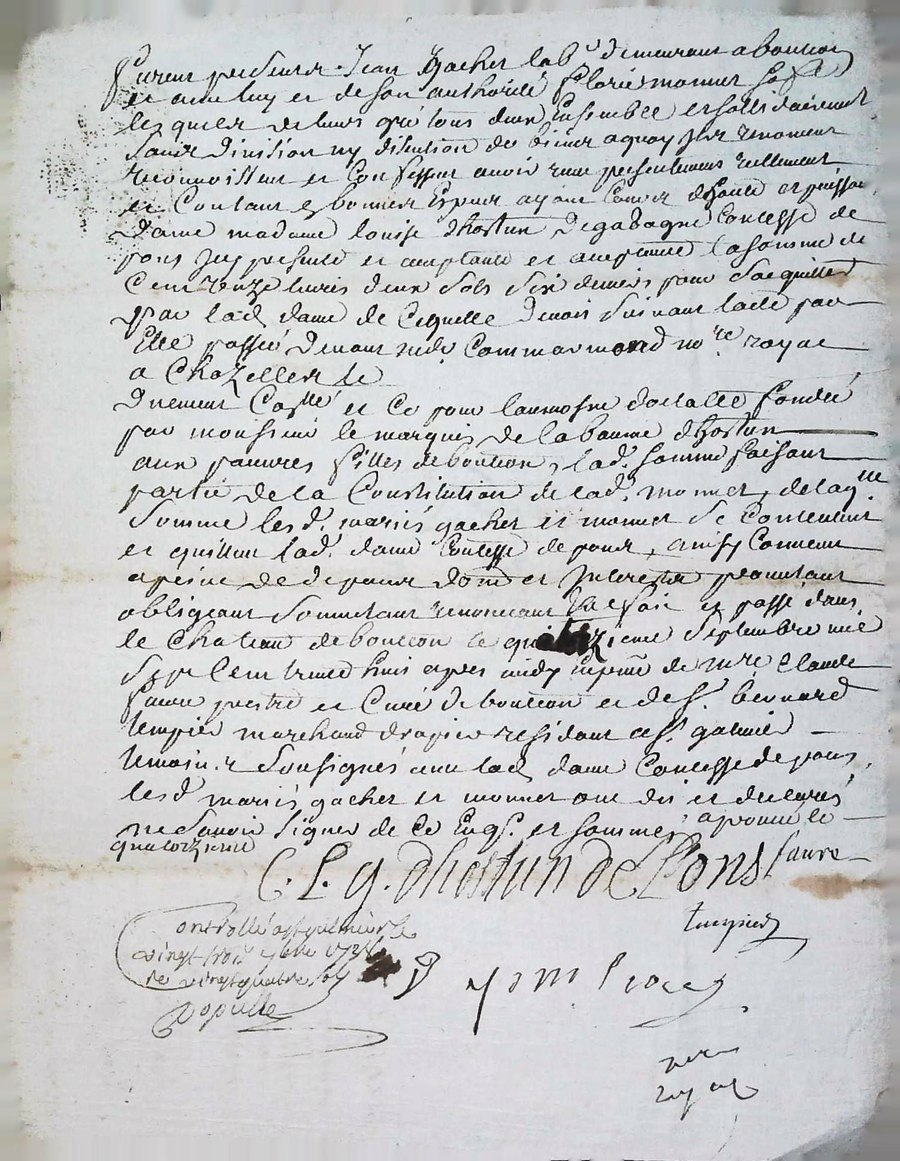 furent presents Jean gachet lab.r demeurant a boution
et avec luy et de son authorité florie monnet sa fe
lesquels de leurs gre tous deux Ensemble et sollidairement
sans division ny disention de biens a quoy ils renoncent
reconnoissent et Confessent avoir reçu presentement reellement
et Contant Es bonnes Especes ayant Cours d haute et puissa
Dame madame louise dhostun Degadagne Comtesse de
pons Icy presente et acceptante la somme de
Cent onze livres deux sols six deniers pour sacquitter
par lad. dame de Cequelle devoit suivant lacte par
Elle passé devant Commarmond no.re royal
a Chazelles le
Duement Con.llé et Ce pour laumosne dotalle fondée
par monsieur le marquis de la baume dhostun
aux pauvres filles de boution, lad. somme faisant
partie de la Constitution de lad. monnet, de laq.lle
somme lesd. mariés gachet et monnet se Contentent
et quittent lad. dame Comtesse de pons, ainsy Convenu
a peine de depens dom et Interests promettant
obligeant soumettant renonceant fait et passé dans
le Chateau de boution le quatorzieme septembre mil
sept Cent trente huit apres midy en p.nce de m.re Claude
faure prestre et Curé de boution et de s.r bernard
tempier marchand drapier residant a s.t galmier
temoins soussignés avec lad. dame Comtesse de pons,
lesd. mariés gachet et monnet ont dit et declarés
ne savoir signer de Ce Enq.s et sommés approuvé le
quatorzieme
C. L. g. dhostun de Pons faure
tempier
Controllé a s.t galmier le
vingt trois 7bre 1738
re vingt quatre sols
nore
royal